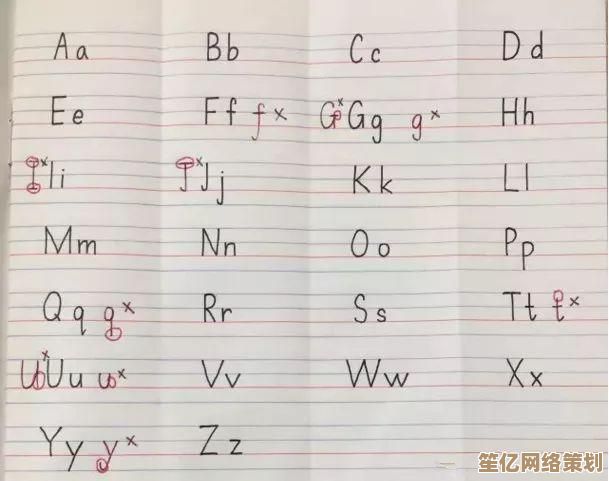 Aa Bb Cc Dd
Ee Ff f× G×Gg g× Hh
I×Ii J×Jj Kk Ll
Mm Nn Oo Pp
Qq q× Rr Ss Tt t×
U×Uu u× Vv Ww Xx
Yy y× Zz
笙亿网络策划